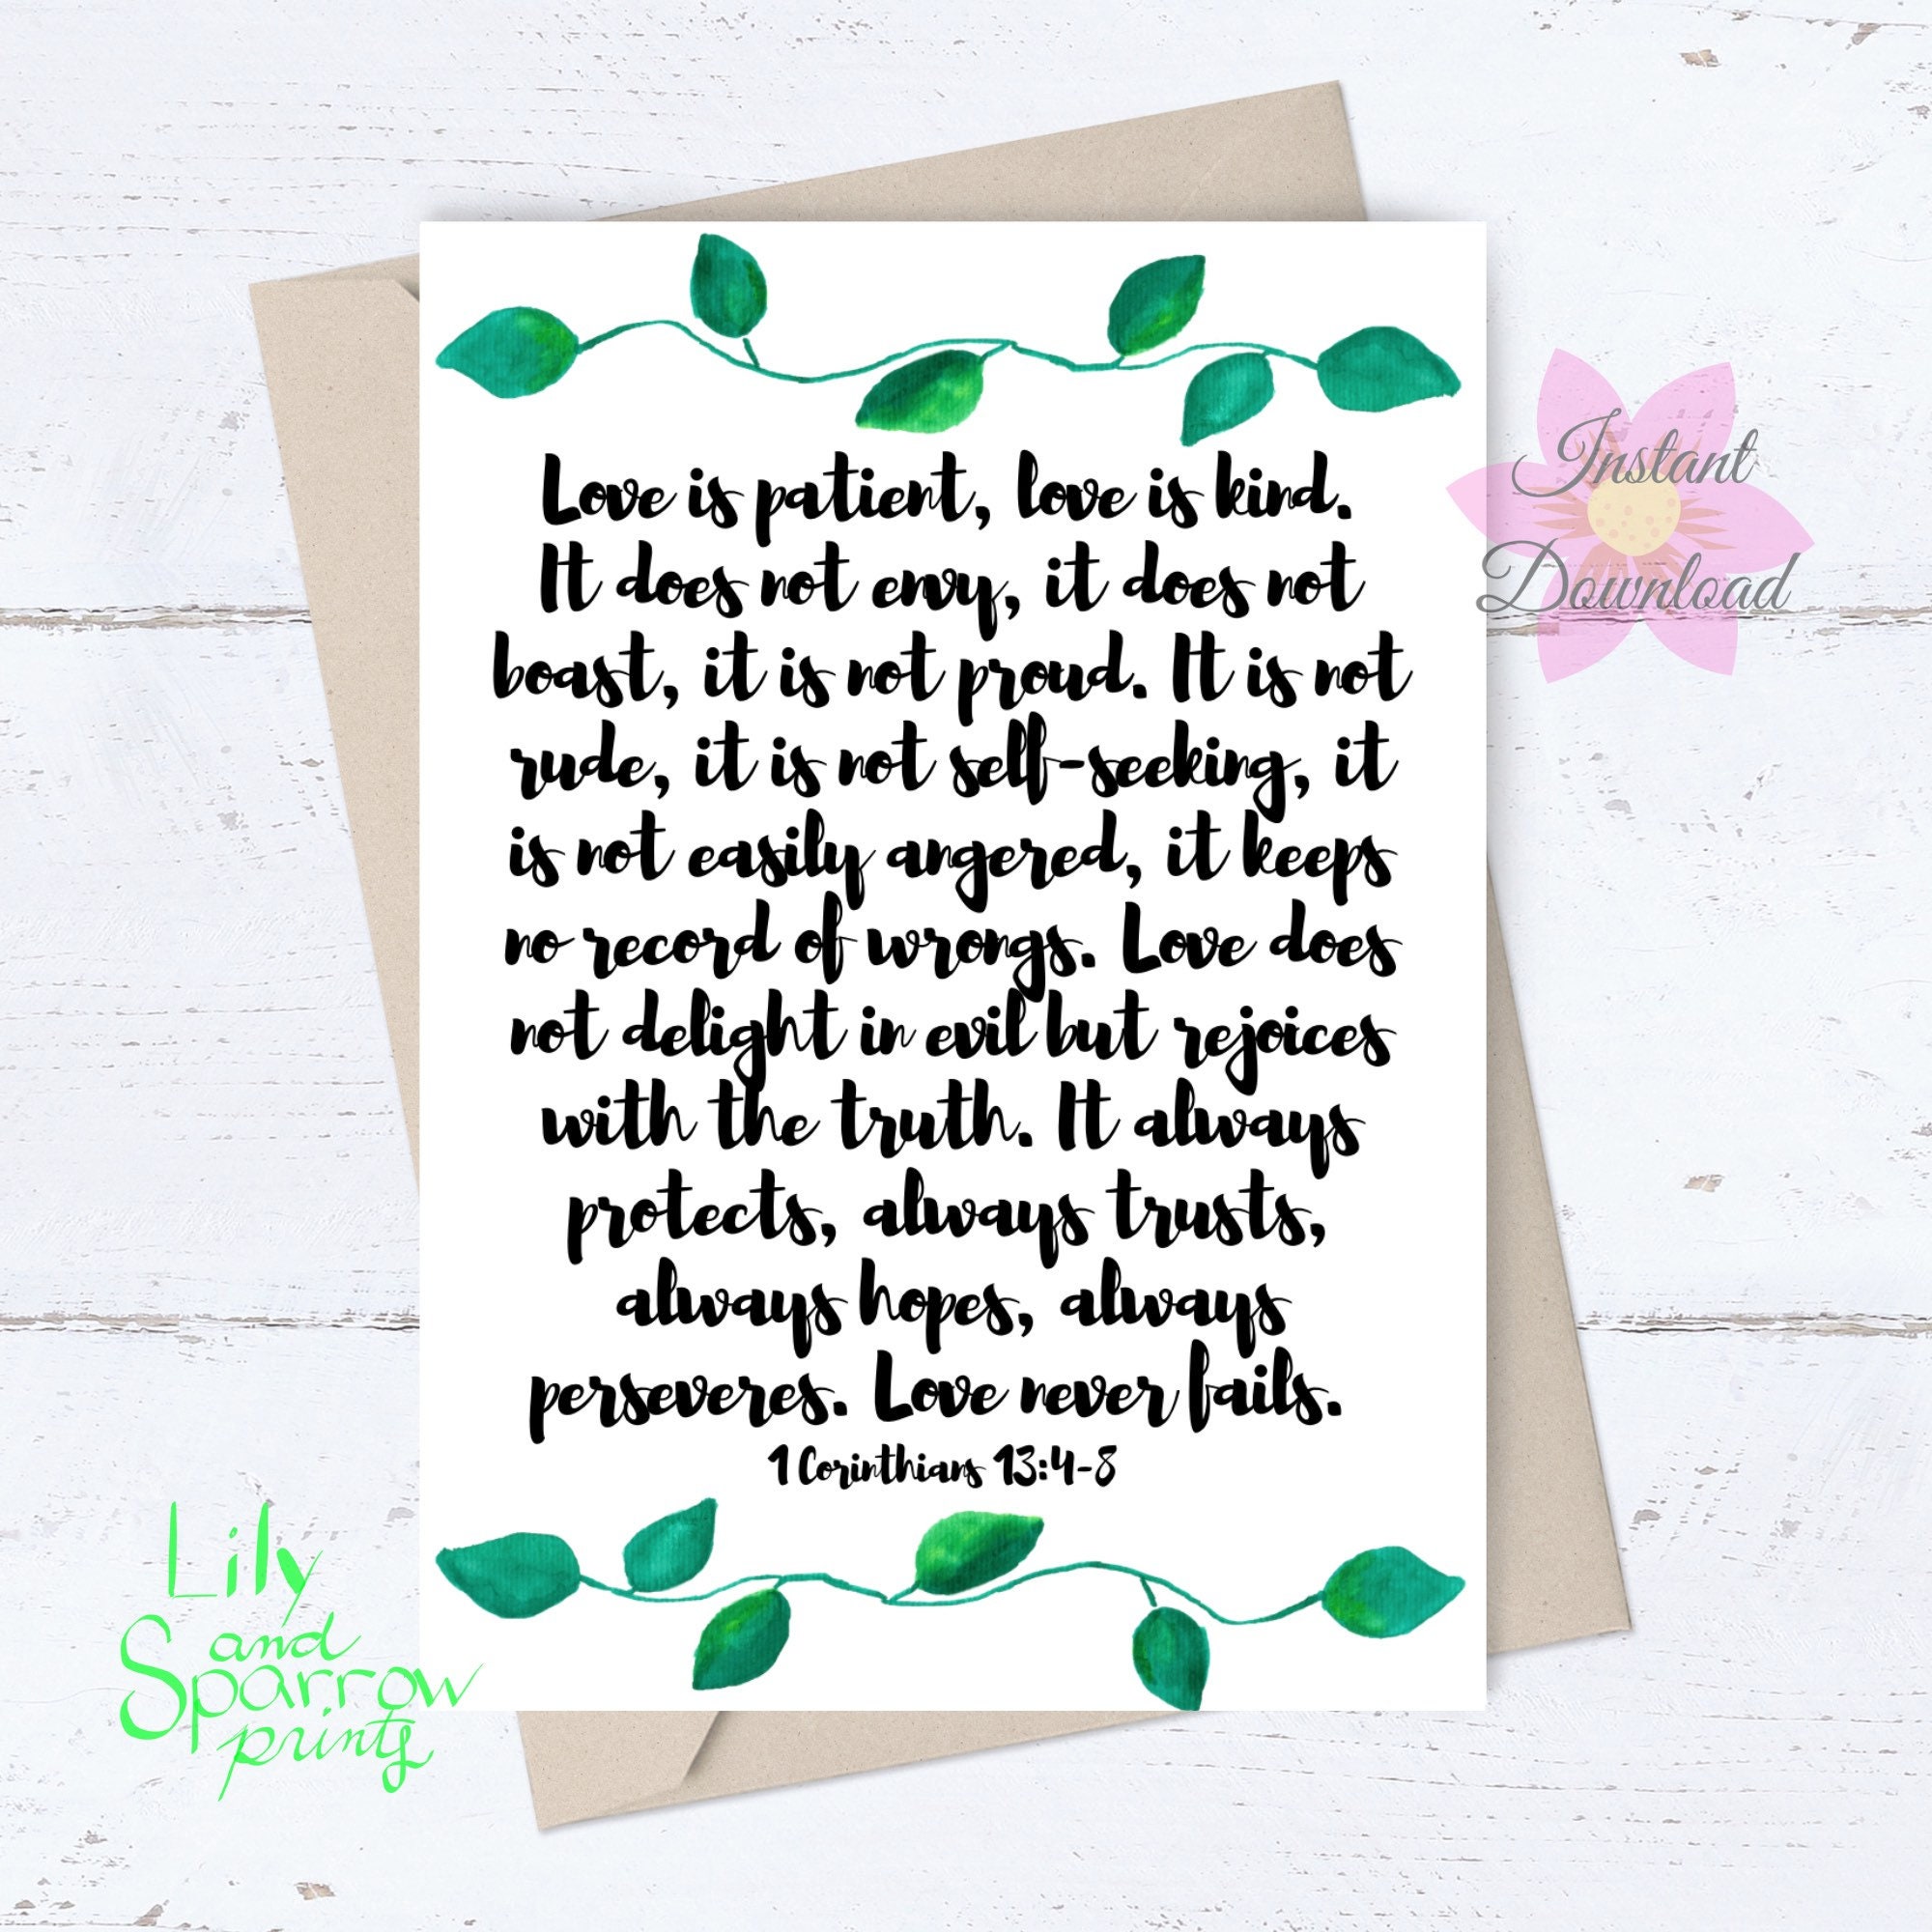 Love is patient, love is kind.
It does not envy, it does not
boast, it is not proud. It is not
rude, it is not self-seeking, it
is not easily angered, it keeps
no record of wrongs. Love does
not delight in evil but rejoices
with the truth. It always
protects, always trusts,
always hopes, always
perseveres. Love never fails.
1 Corinthians 13:4-8
Instant
Download
Lily
and
Sparrow
prints